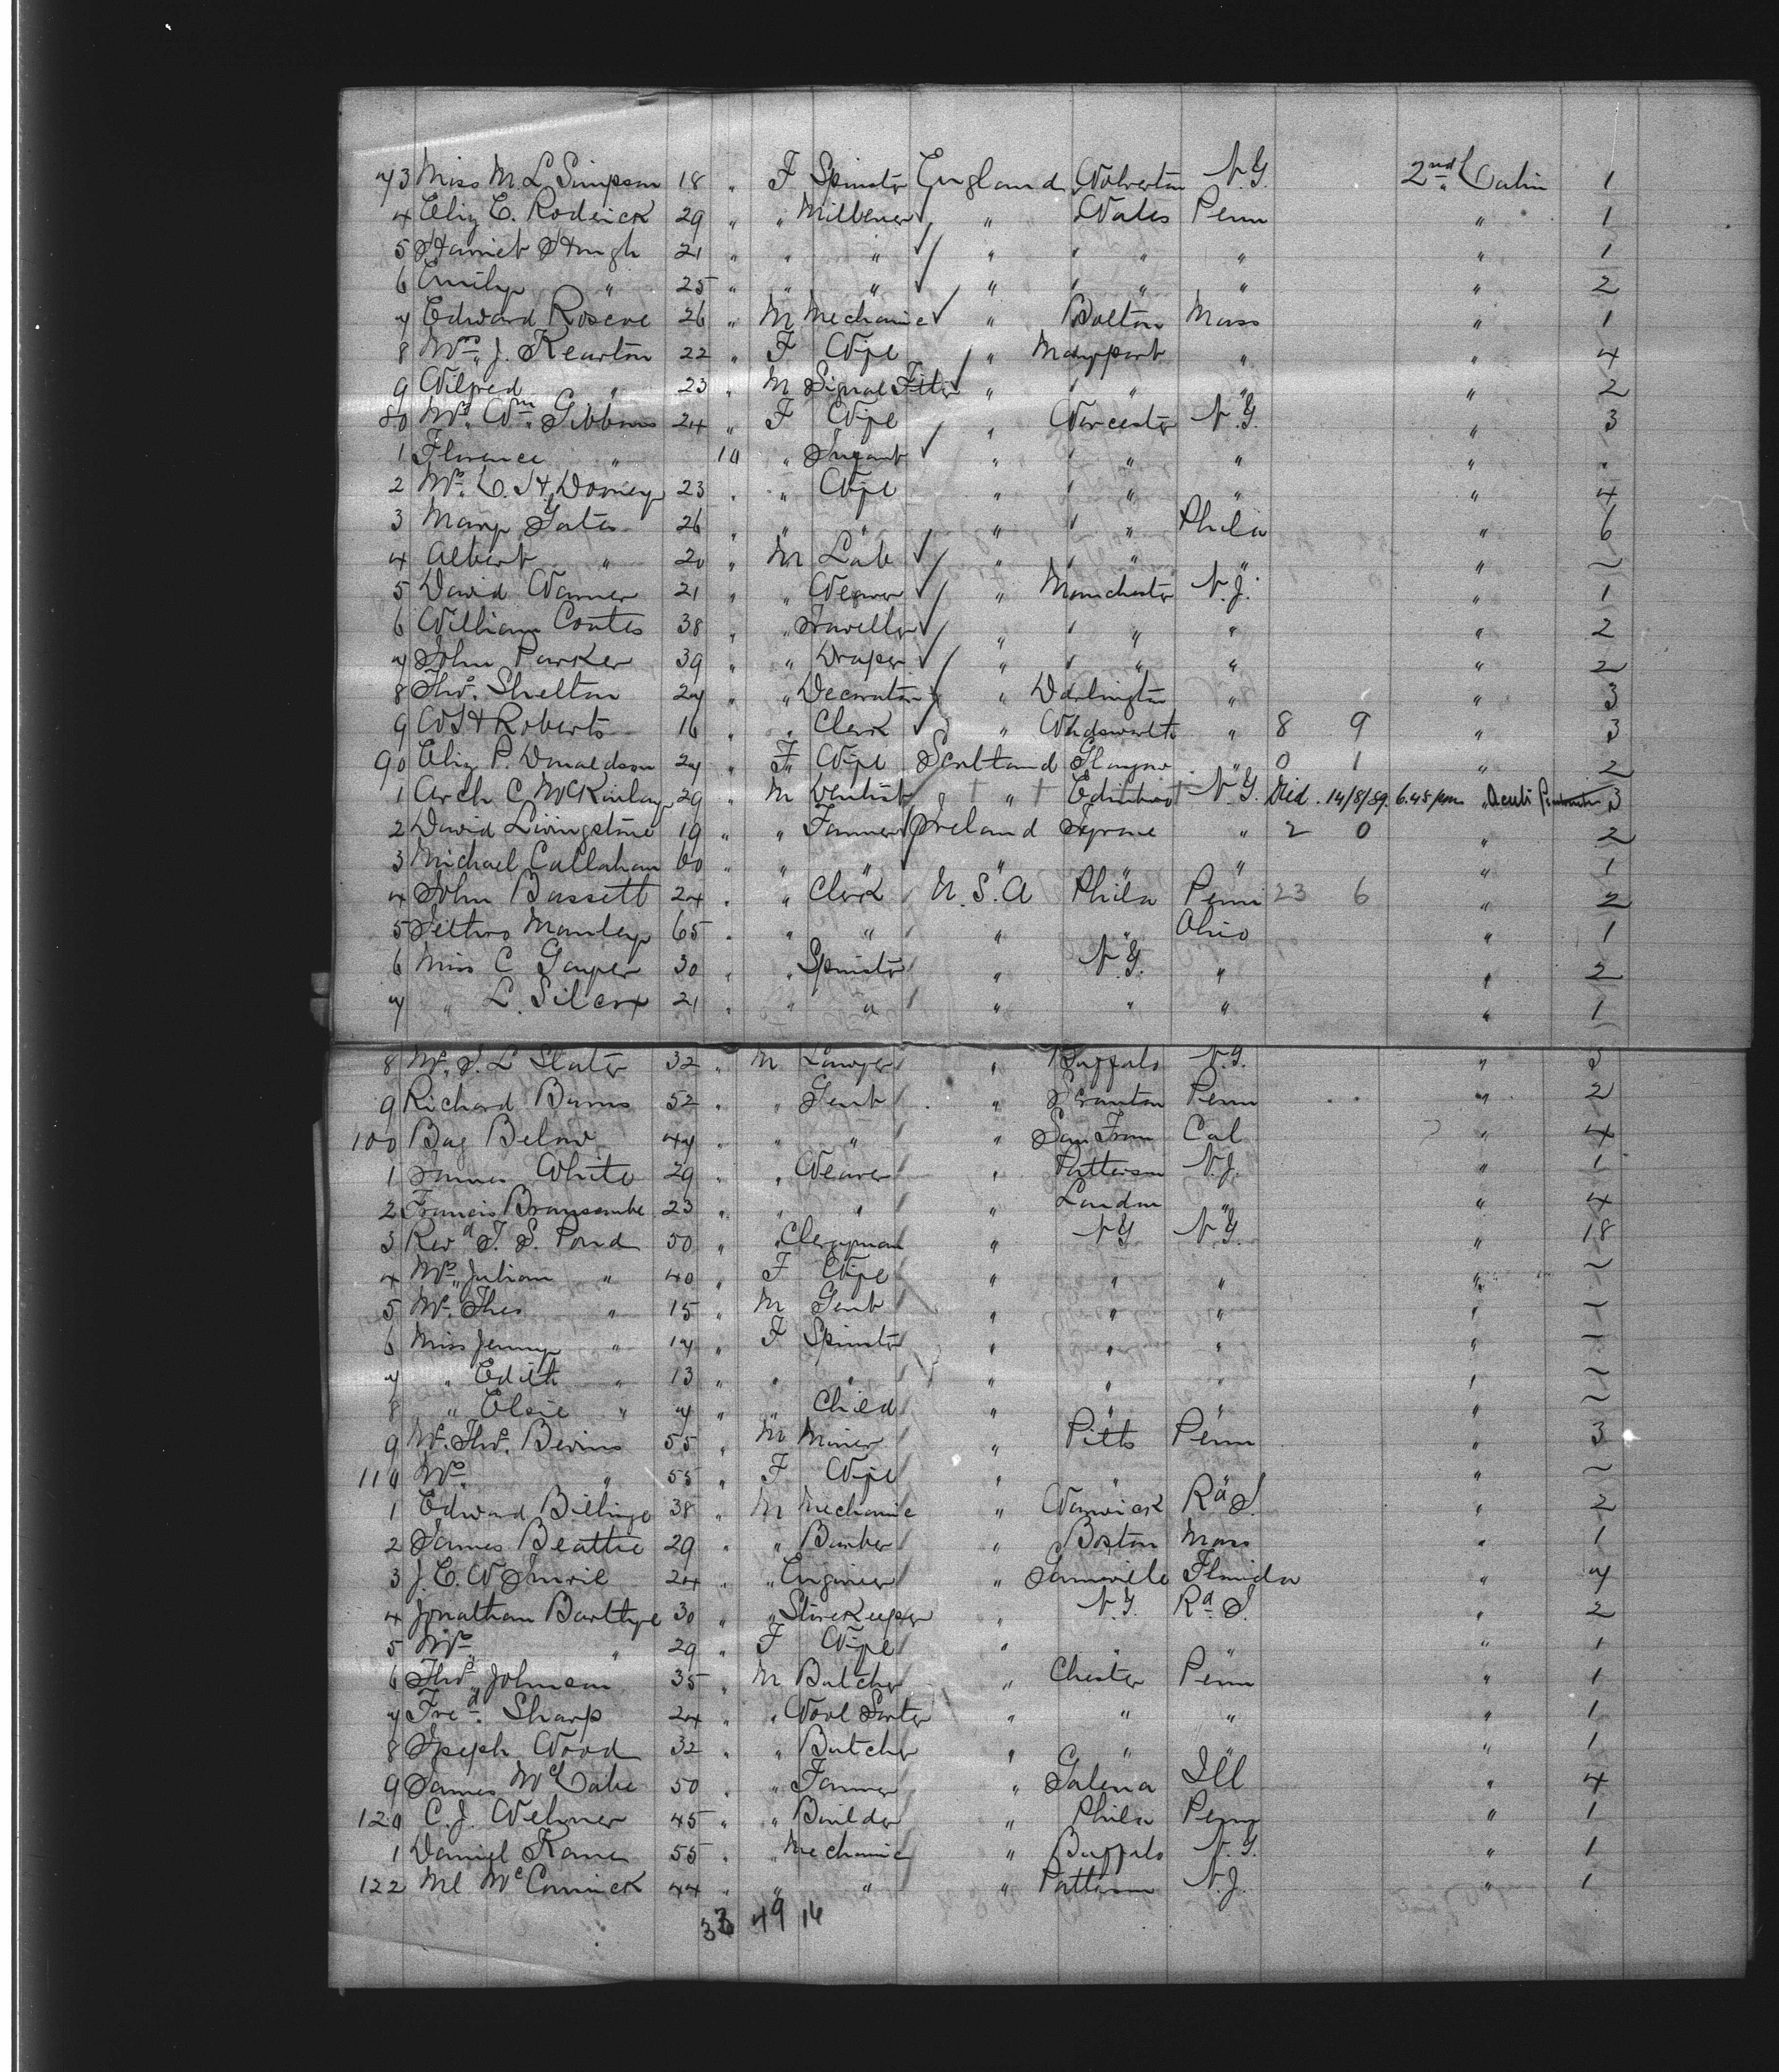 73 Miss M. L. Simpson 18 " F Spinster England Wolverton N.Y. 2nd Cabin 1
4 Eliz E. Roderick 29 " " Milliner " Wales Penn " 1
5 Harriet Hugh 21 " " " " " " " 1
6 Emily " 25 " " " " " " " 2
7 Edward Roscoe 26 " M Mechanic " Bolton Mass " 1
8 Mrs. J. Kearton 22 " F Wife " Maryport " " 4
9 Wilfred " 23 " M Signal Fitter " " " " 2
80 Mrs. Wm. Gibbons 24 " F Wife " Worcester N.Y. " 3
1 Florence " 10 " Infant " " " " "
2 Mrs. C. H. Dorney 23 " " Wife " " " " 4
3 Mary Yates 26 " " " " " Phila " 6
4 Albert " 20 " M Lab " " " " ~
5 David Warner 21 " " Weaver " Manchester N.J. " 1
6 William Coates 38 " " Traveller " " " " 2
7 John Parker 39 " " Draper " " " " 2
8 Thos. Shelton 27 " " Decorator " Darlington " " 3
9 W H Roberts 16 " " Clerk " Wandsworth " 8 9 " 3
90 Eliz P. Donaldson 27 " F Wife Scotland Glasgow " 0 1 " 2
1 Arch C McKinlay 29 " M Dentist " Edinboro N.Y. Died 14/8/89 6.45 pm " Acute 3
2 David Livingstone 19 " " Farmer Ireland Tyrone " 2 0 " 2
3 Michael Callahan 60 " " " " " " " 1
4 John Bassett 24 " " Clerk U.S.A Phila Penn 23 6 " 2
5 Jethro Manley 65 " " " " " Ohio " 1
6 Miss C 30 " " Spinster " N.Y. " " 2
7 " L. Silcox 21 " " " " " " " 1
8 Mr. S. L Slater 32 " M Lawyer " Buffalo N.Y. " 3
9 Richard Burns 52 " " Gent " Scranton Penn " 2
100 Bag Below 47 " " " " San Fran Cal " 4
1 James White 29 " " Weaver " Patterson N.J. " 1
2 Francis Branscombe 23 " " " " London " " 4
3 Revd T. S. Pond 50 " " Clergyman " N.Y N.Y. " 18
4 Mrs. Julian " 40 " F Wife " " " " ~
5 Mr. Theo " 15 " M Gent " " " " ~
6 Miss Jenny " 17 " F Spinster " " " " ~
7 " Edith " 13 " " " " " " " ~
8 " Elsie " 7 " " Child " " " " ~
9 Mr. Thos. Bevins 55 " M Miner " Pitts Penn " 3
110 Mrs. " 55 " F Wife " " " " ~
1 Edward Billings 38 " M Mechanic " Warwick Rd I. " 2
2 James Beattie 29 " " Barber " Boston Mass " 1
3 J. C. W 24 " " Engineer " Florida " 7
4 Jonathan 30 " " Storekeeper " N.Y. Rd I. " 2
5 Mrs. " 29 " F Wife " " " " 1
6 Thos. Johnson 35 " M Butcher " Chester Penn " 1
7 Fred. Sharp 24 " " Wool Sorter " " " " 1
8 Joseph Wood 32 " " Butcher " " " " 1
9 James McCabe 50 " " Farmer " Galena Ill " 4
120 C. J. 45 " " Builder " Phila Penn " 1
1 Daniel Kane 55 " " Mechanic " Buffalo N.Y. " 1
122 Ml McCormick 44 " " " " Patterson N.J. " 1
33 49 16